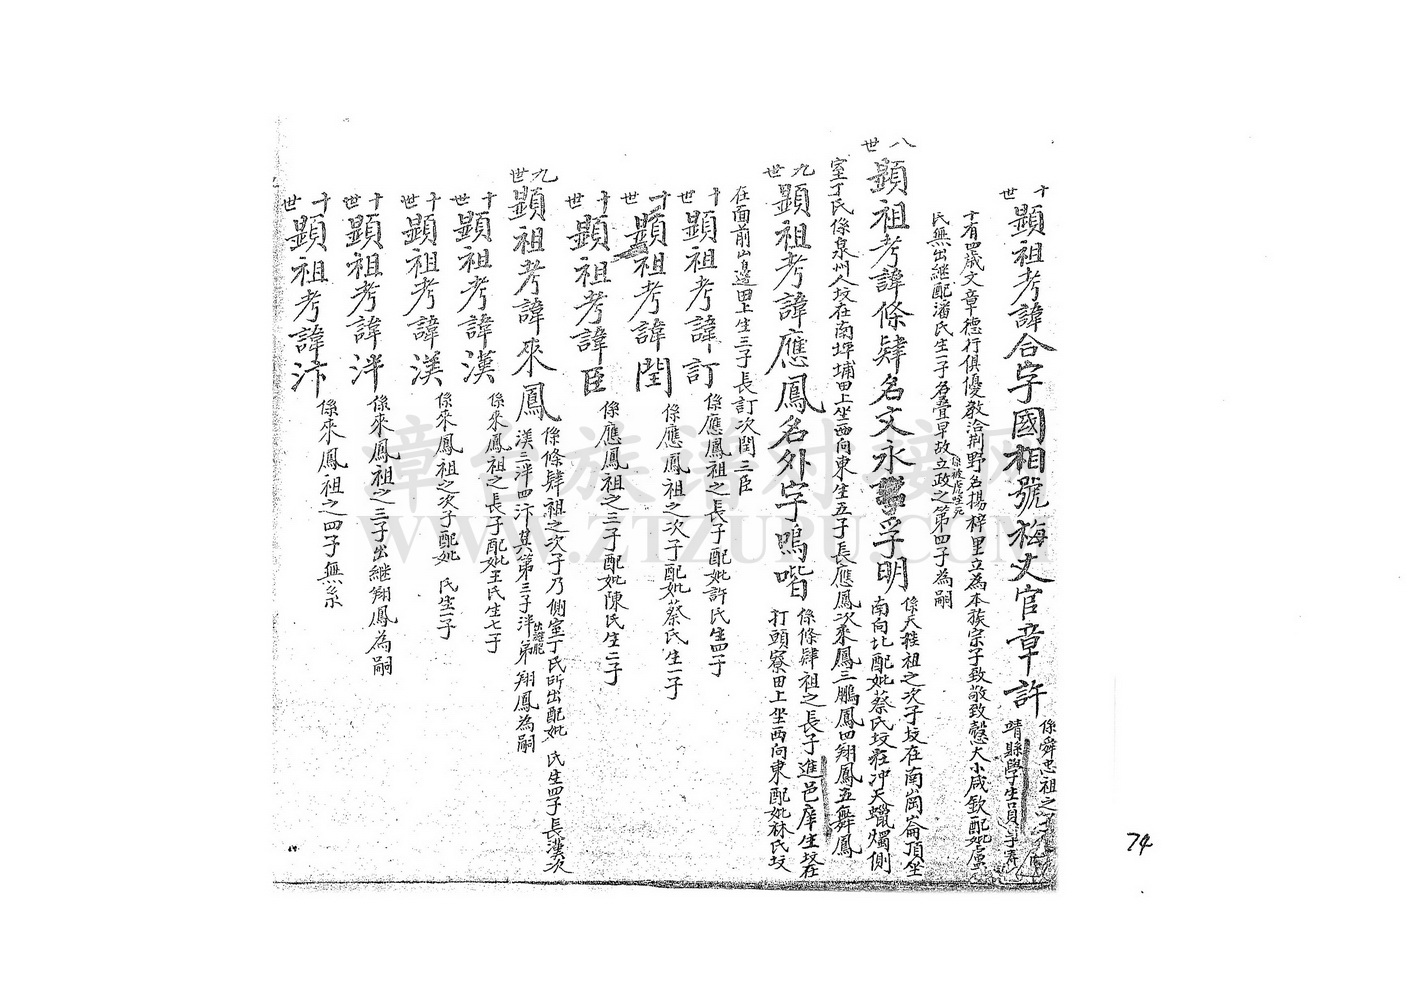 十世
顯祖考諱合字國相號梅丈官章許
係舜忠祖之
靖縣學生員享壽
十有四歲文章德行俱優教洽荆野名揚梓里立為本族宗子致敬致愨大小咸欽配妣盧
氏無出継配潘氏生一子名疊早故立政之第四子為嗣
八世
顯祖考諱條肆名文永字孚明
係天牲祖之次子坟在南崗崙頂坐
南向北配妣蔡氏坟在冲天蠟燭側
室丁氏係泉州人坟在南坪埔田上坐西向東生五子長應鳳次來鳳三鵬鳳四翔鳳五舞鳳
九世
顯祖考諱應鳳名外字鳴喈
係條肆祖之長子進邑庠生坟在
打頭寮田上坐西向東配妣林氏坟
在面前山邊田上生三子長訂次閏三臣
十世
顯祖考諱訂
係應鳳祖之長子配妣許氏生四子
十世
顯祖考諱閏
係應鳳祖之次子配妣蔡氏生一子
十世
顯祖考諱臣
係應鳳祖之三子配妣陳氏生二子
九世
顯祖考諱來鳳
係條肆祖之次子乃側室丁氏所出配妣 氏生四子長漢次
渼三泮四汴其第三子泮出継胞弟翔鳳為嗣
十世
顯祖考諱漢
係來鳳祖之長子配妣王氏生七子
十世
顯祖考諱渼
係來鳳祖之次子配妣 氏生二子
十世
顯祖考諱泮
係來鳳祖之三子出継翔鳳為嗣
十世
顯祖考諱汴
係來鳳祖之四子無系
74
章台族谱对接网
WWW.ZTZUPU.COM